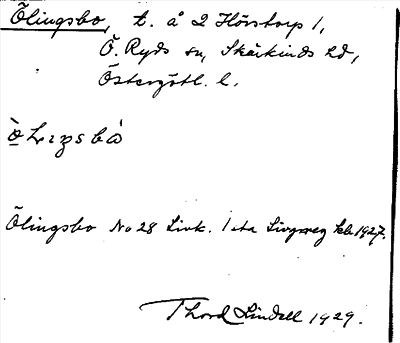 Ölingsbo, t. å 2 Hörstorp 1,
Ö. Ryds sn, Skärkinds hd,
Östergötl. l.
Ölingsbo No 28 Link. 1 sta Livgreg
Thord Lindell 1929.